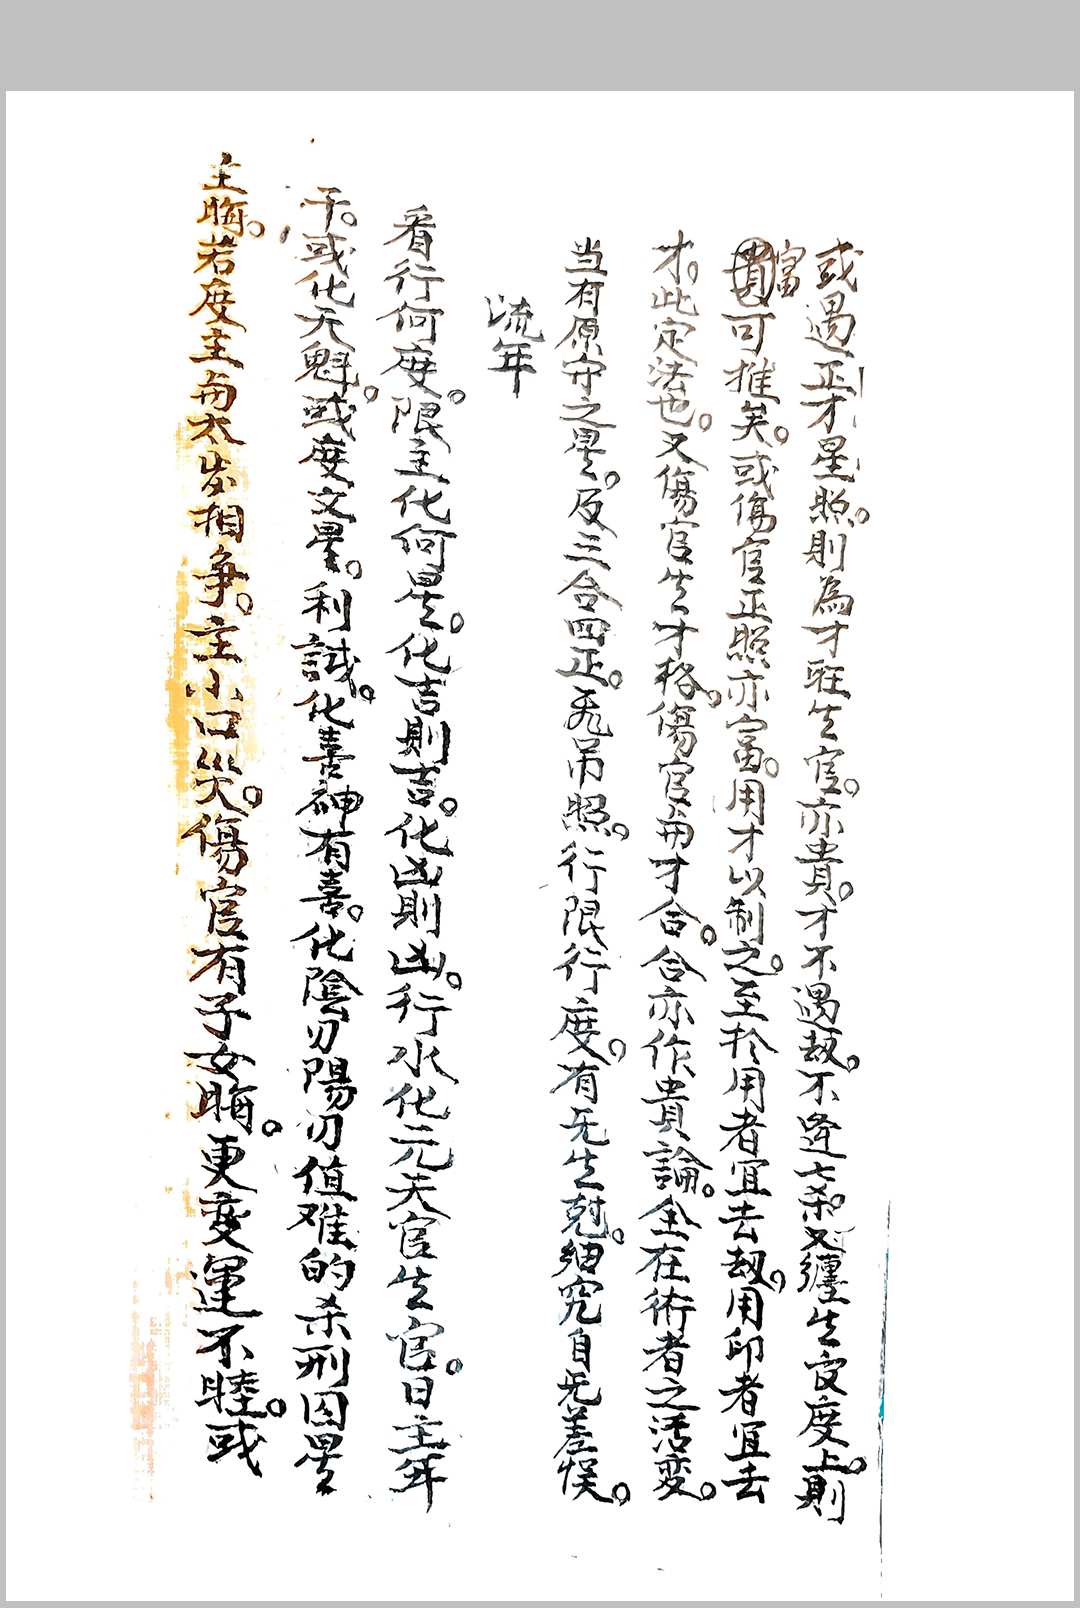 或遇正才星照。則為才旺生官。亦貴。才不遇刼。不逢七杀。又纏生官度上。則
富可推矣。或傷官正照亦富。用才以制之。至於用者宜去刼。用印者宜去
才。此定法也。又傷官生才格。傷官与才合。合亦作貴論。全在術者之活变。
当有原守之星。及三合四正。无吊照。行限行度。有无生尅。細究自无差悮。
流年
看行何度。限主化何星。化吉則吉。化凶則凶。行水化元天官生官。日主年
干。或化天魁。或度文星。利試。化喜神有喜。化陰刃陽刃值难的杀刑囚星
主晦。若度主与太岁相争。主小口災。傷官有子女晦。更变運不睦。或